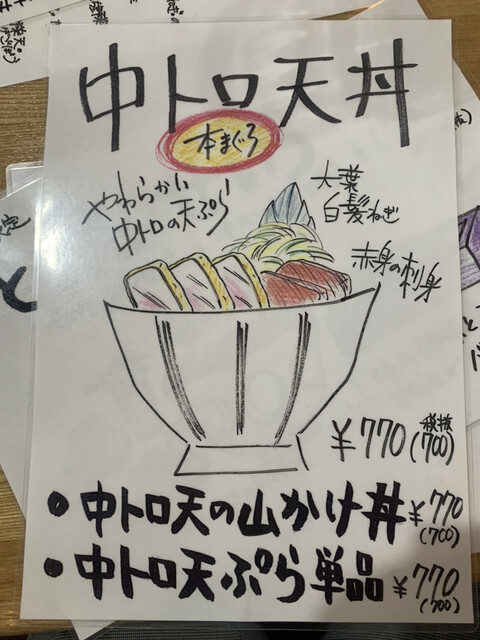 中トロ天丼
本まぐろ
やわらかい
中トロの天ぷら
大葉
白髪ねぎ
赤身の刺身
¥770(税抜700)
● 中トロ天の山かけ丼 ¥770(700)
● 中トロ天ぷら単品 ¥770(700)